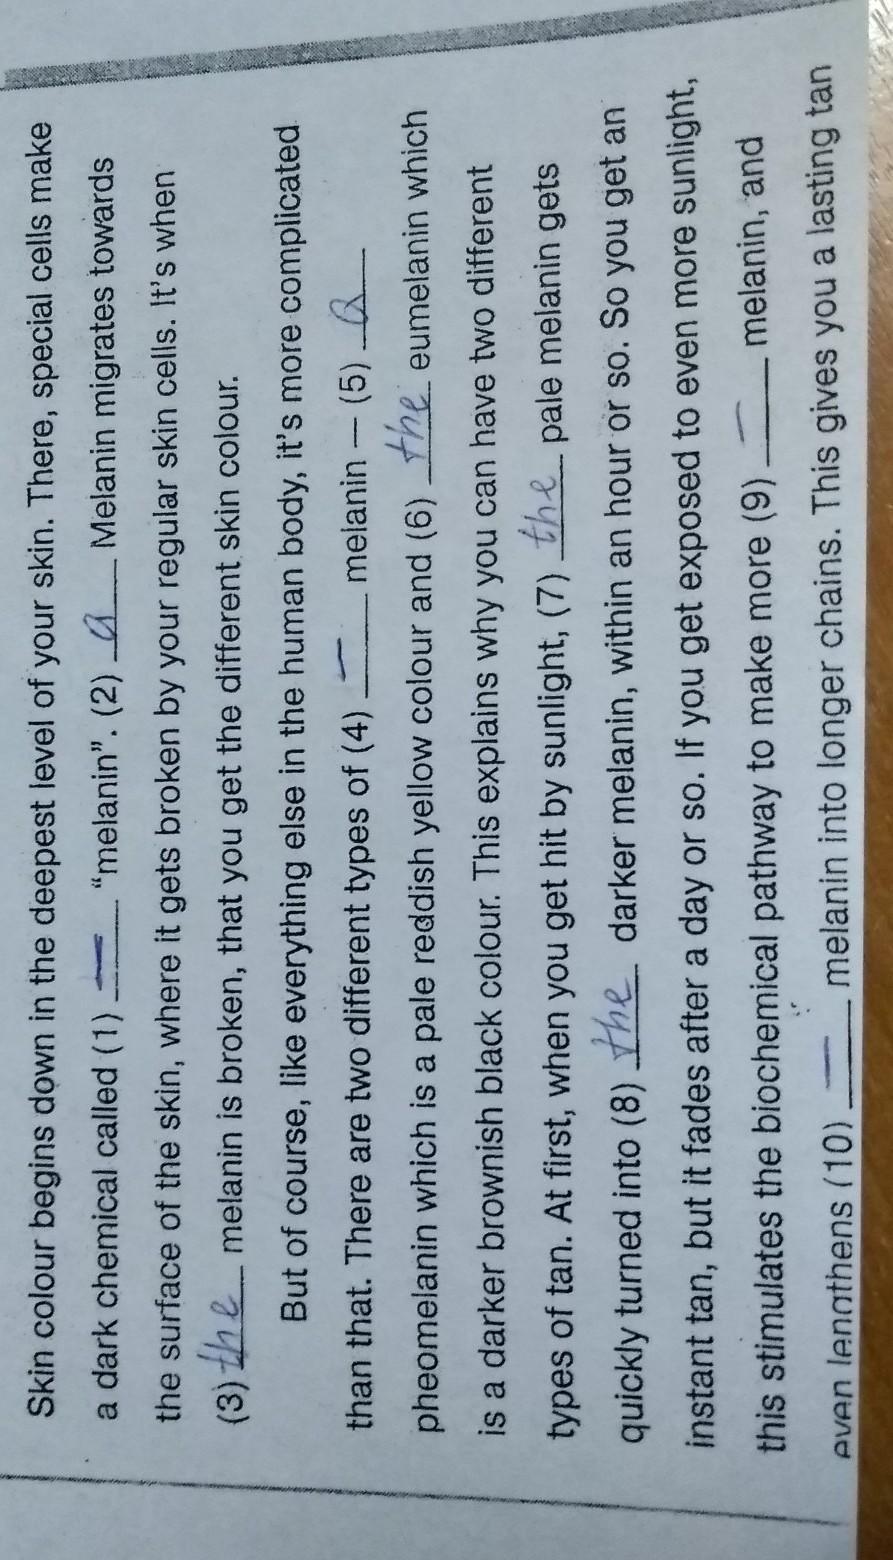 Skin colour begins down in the deepest level of your skin. There, special cells make
a dark chemical called (1) — "melanin". (2) a Melanin migrates towards
the surface of the skin, where it gets broken by your regular skin cells. It's when
(3) the melanin is broken, that you get the different skin colour.
But of course, like everything else in the human body, it's more complicated
than that. There are two different types of (4) — melanin — (5) a
pheomelanin which is a pale reddish yellow colour and (6) the eumelanin which
is a darker brownish black colour. This explains why you can have two different
types of tan. At first, when you get hit by sunlight, (7) the pale melanin gets
quickly turned into (8) the darker melanin, within an hour or so. So you get an
instant tan, but it fades after a day or so. If you get exposed to even more sunlight,
this stimulates the biochemical pathway to make more (9) — melanin, and
even lengthens (10) — melanin into longer chains. This gives you a lasting tan